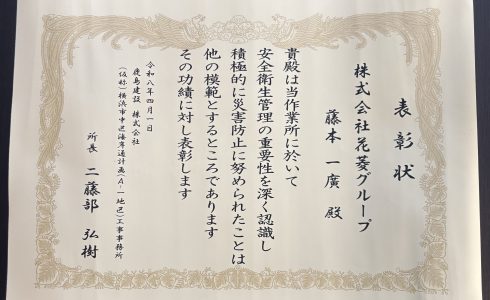 表彰状
株式会社花菱グループ
藤本一廣 殿
貴殿は当作業所に於いて
安全衛生管理の重要性を深く認識し
積極的に災害防止に努められたことは
他の模範とするところであります
その功績に対し表彰します
令和八年四月一日
鹿島建設 株式会社
(仮称)横浜市中区海岸通計画(A-1地区)工事事務所
所長 二藤部 弘樹